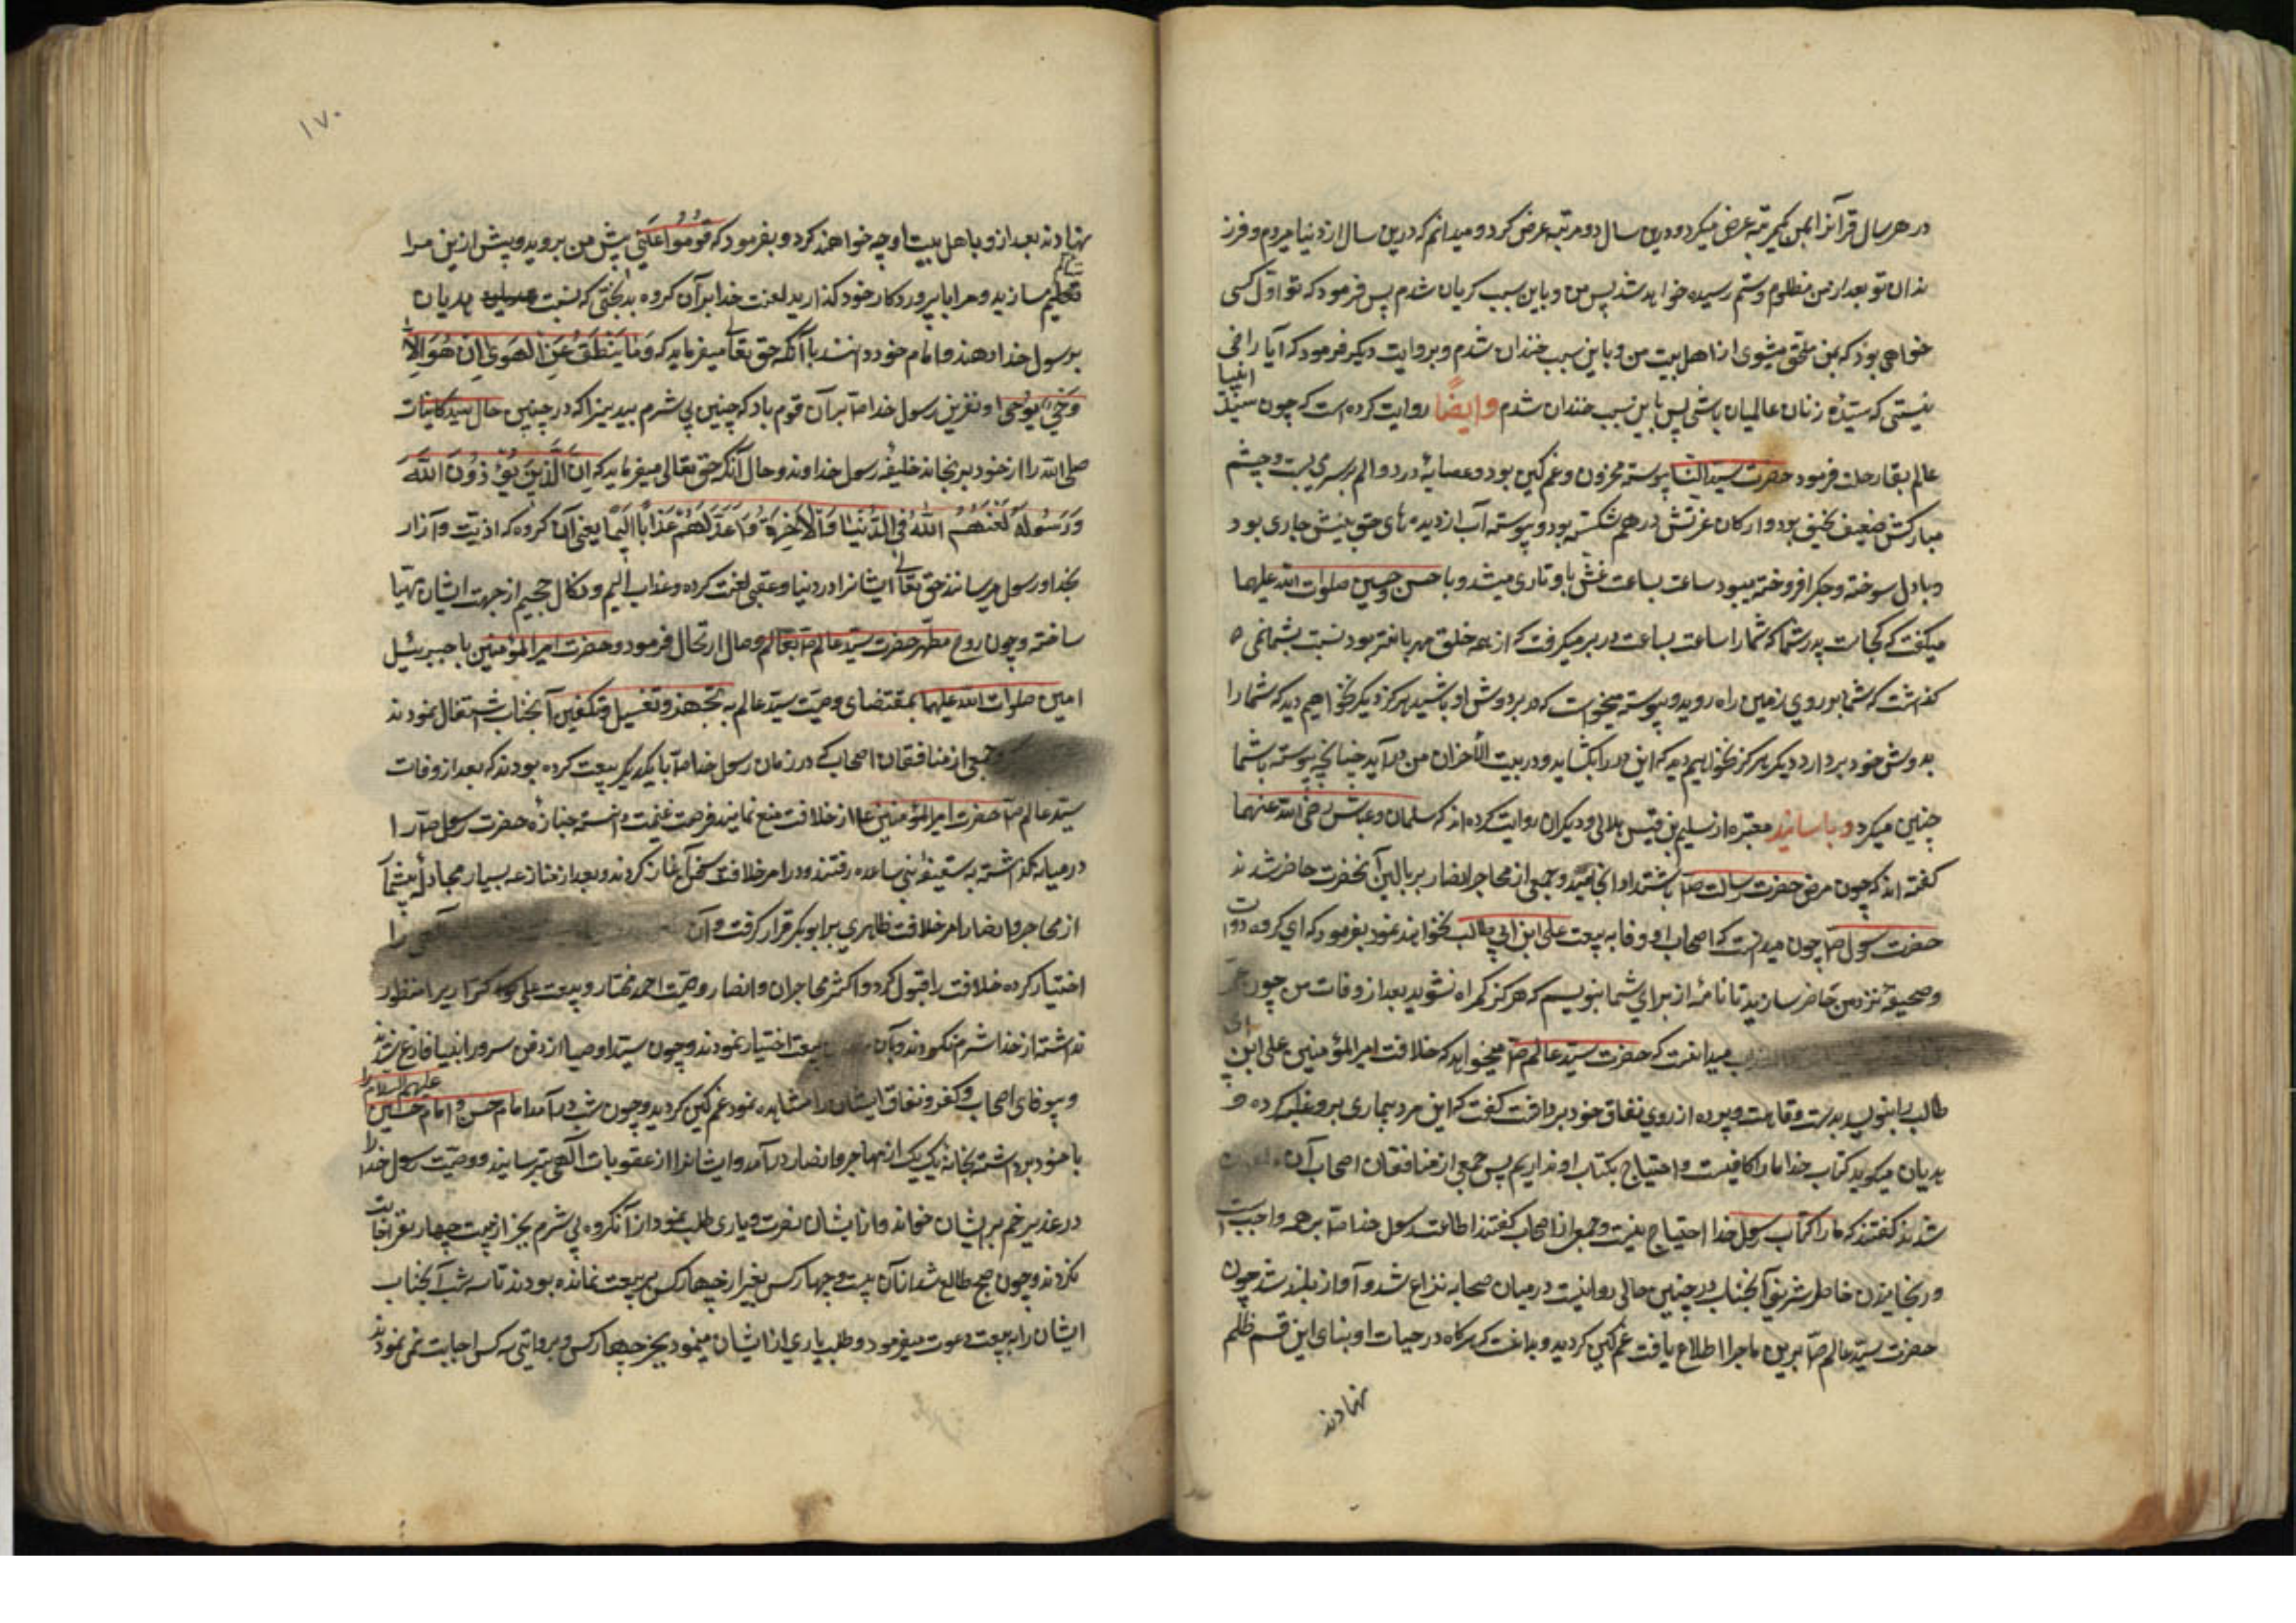 در هر سال قرآنرا بمن یکمرتبه عرض میکرد و درین سال دو مرتبه عرض کرد و میدانم که درین سال از دنیا میروم و فرز
ندان تو بعد از من مظلوم و ستم رسیده خواهند شد پس من و باین سبب کریان شدم پس فرمود که تو اول کسی
خواهی بود که بمن ملحق میشوی از اهل بیت من و باین سبب خندان شدم و بروایت دیکر فرمود که آیا راضی
نیستی که سیّدهٔ زنان عالمیان باشی پس باین سبب خندان شدم وایضًا روایت کرده است که چون سیّد انبیا
عالم بقا رحلت فرمود حضرت سیدالنسا پیوسته محزون و غم کین بود و عصابهٔ درد و الم بر سر می بست و جسم
مبارکش ضعیف نحیف بود و ارکان عزتش در هم شکسته بود و پیوسته آب از دیده های حق بینش جاری بود
و با دل سوخته و جکر افروخته میبود ساعت بساعت غش باو تاری میشد و با حسن و حسین صلوات الله علیهما
میکفت که کجاست پدر شما که شما را ساعت بساعت در بر میکرفت که از همه خلق مهربانتر بود نسبت بشما نمی
کذاشت که شما بر روی زمین راه روید و پیوسته میخواست که در بر دوش او باشید هرکز دیکر نخواهیم دید که شما را
بدوش خود بردارد دیکر هرکز نخواهیم دید که این در را بکشاید و در بیت الأحزان من درآید چنانچه پیوسته با شما
چنین میکرد و باسانید معتبره از سلیم بن قیس هلالی و دیکران روایت کرده اند که سلمان و عباس رضی الله عنهما
کفته اند که چون مرض حضرت رسالت صلّ باشتداد انجامید و جمعی از مهاجر و انصار بر بالین آنحضرت حاضر شدند
حضرت رسول صلّ چون میدانست که اصحاب او وفا به بیعت علی ابن ابی طالب نخواهند نمود بفرمود که ای کروه دوات
و صحیفه نزد من حاضر سازید تا نامهٔ از برای شما بنویسم که هرکز کمراه نشوید بعد از وفات من چون
میدانست که حضرت سیّد عالم صلّ میخواهد که خلافت امیر المؤمنین علی ابن
طالب را بنویسد از روی نفاق خود برداشت کفت که این مرد بیماری برو غلبه کرده و
هدیان میکوید کتاب خدا ما را کافیست و احتیاج بکتاب او نداریم پس جمعی از منافقان اصحاب آن
شدند کفتند که ما را کتاب رسول خدا احتیاج نیست و جمعی از اصحاب کفتند اطاعت رسول خدا صلّ بر همه واجبست
و رنجانیدن خاطر شریف آنجناب در چنین حالی روا نیست در میان صحابه نزاع شد و آواز بلند شد چون
حضرت سیّد عالم صلّ برین ماجرا اطلاع یافت غم کین کردید و بدانست که هرکاه در حیات او بنای این قسم ظلم
نهادند
١٧٠
نهادند بعد از و با اهل بیت او چه خواهند کرد و بفرمود که قُومُوا عَنّی پیش من بروید و پیش ازین مرا
تعلیم مسازید و مرا با پروردکار خود کذارید لعنت خدا بر آن کروه بدبختی که نسبت هدیان
برسول خدا دهند و امام خود دانند با آنکه حق تعالی میفرماید که وَمَا یَنْطِقُ عَنِ الْهَوٰی اِنْ هُوَ اِلاَّ
وَحْیٌ یُوحٰی و نفرین رسول خدا صلّ بر آن قوم باد که چنین بی شرم بیدینرا که در چنین حال سیّد کاینات
صلی الله را از خود برنجاند خلیفهٔ رسول خداوند و حال آنکه حق تعالی میفرماید که اِنَّ الَّذِینَ یُؤْذُونَ اللّٰهَ
وَرَسُولَهُ لَعَنَهُمُ اللّٰهُ فِی الدُّنْیَا وَالْآخِرَةِ وَاَعَدَّ لَهُمْ عَذَابًا اَلِیمًا یعنی آن کروه که اذیّت و آزار
بخدا و رسول میرسانند حق تعالی ایشانرا در دنیا و عقبی لعنت کرده و عذاب الیم و نکال جحیم از جهت ایشان مهیّا
ساخته و چون روح مطهّر حضرت سیّد عالم صلّ بعالم وصال ارتحال فرمود و حضرت امیرالمؤمنین با جبرئیل
امین صلوات الله علیهما بمقتضای وصیّت سیّد عالم به تجهیز و تغسیل و تکفین آنجناب اشتغال نمودند
وجمعی از منافقان اصحاب که در زمان رسول خدا صلّ با یکدیکر بیعت کرده بودند که بعد از وفات
سیّد عالم صلّ حضرت امیرالمؤمنین علیه از خلافت منع نمایند فرصت غنیمت دانسته جنازهٔ حضرت رسول صلّ را
در میانه کذاشته به سقیفهٔ بنی ساعده رفتند و در امر خلافت سخن آغاز کردند و بعد از منازعه بسیار مجادلهٔ بیشمار
از مهاجر و انصار امر خلافت ظاهری بر ابو بکر قرار کرفت و آن را
اختیار کرده خلافت را قبول کرد و اکثر مهاجران و انصار وصیّت احمد مختار و بیعت علی کرّار را منظور
نداشته از خدا شرم نکردند و بآن بیعت اختیار نمودند و چون سیّد اوصیا از دفن سرور انبیا فارغ شدند
و بیوفای اصحاب و کفر و نفاق ایشان را مشاهده نمود غم کین کردید و چون شب درآمد امام حسن و امام حسین علیهم السلام را
با خود برداشته بخانهٔ یک یک از مهاجر و انصار درآمد و ایشانرا از عقوبات آلهی بترسانید و وصیّت رسول خدا را
در غدیر خم بر ایشان خواند و از ایشان نصرت و یاری طلب نمود از آنکروه بی شرم بجز از بیست چهار نفر اجابت
نکردند و چون صبح طالع شد از آن بیست و چهار کس بغیر از چهار کس بر بیعت نمانده بودند تا سه شب آنجناب
ایشان را به بیعت دعوت میفرمود و طلب یاری از ایشان مینمود بجز چهار کس و بروایتی سه کس اجابت نمی نمودند